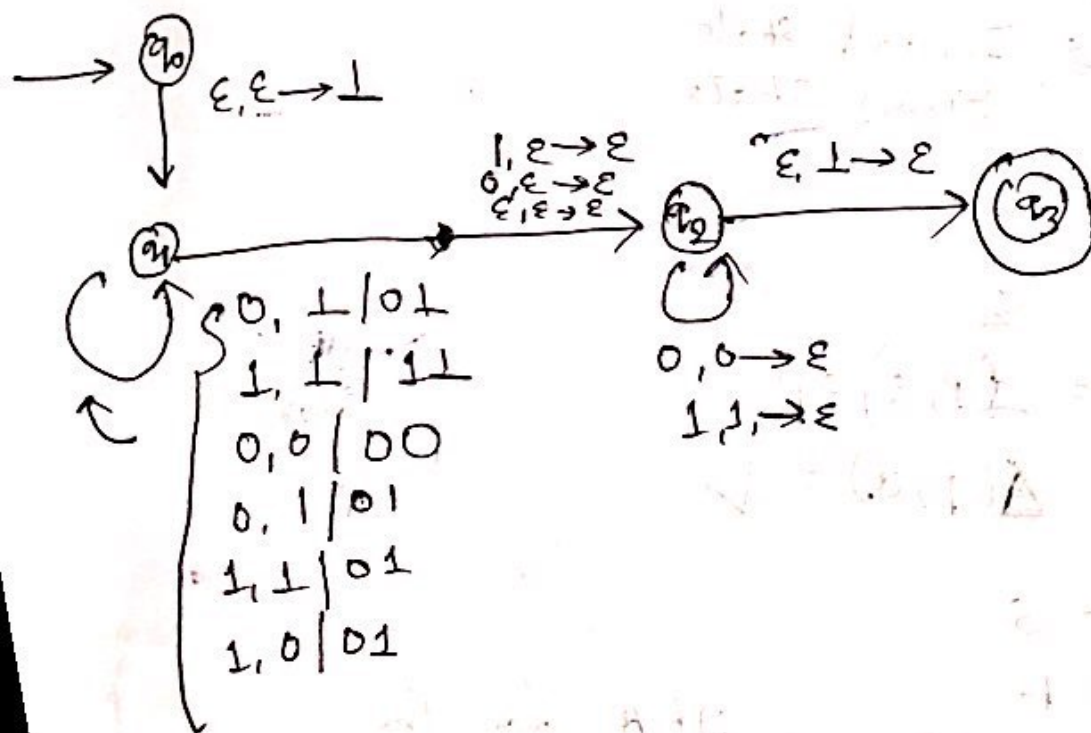 q0
ε,ε→⊥
1,ε→ε
0,ε→ε
ε,ε→ε
ε,⊥→ε
q1
q2
q3
0,⊥|0⊥
1,⊥|1⊥
0,0|00
0,1|01
1,1|01
1,0|01
0,0→ε
1,1,→ε